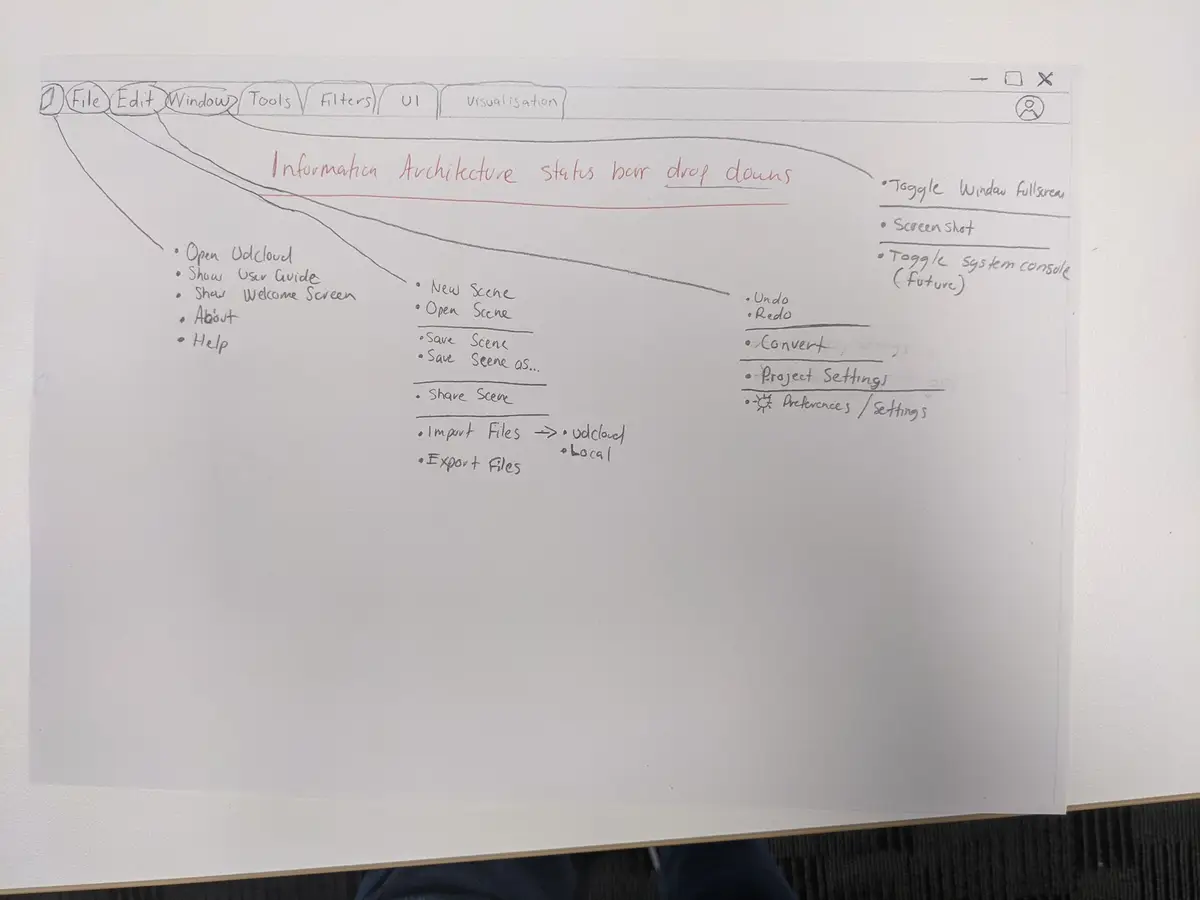 File Edit Window Tools Filters UI Visualisation
Information Architecture status bar drop downs
• Toggle Window Fullscreen
• Screenshot
• Toggle system console
(future)
• Open Udcloud
• Show User Guide
• Show Welcome Screen
• About
• Help
• New Scene
• Open Scene
• Save Scene
• Save Scene as...
• Share Scene
• Import Files → • udcloud
• Local
• Export Files
• Undo
• Redo
• Convert
• Project Settings
• Preferences / Settings